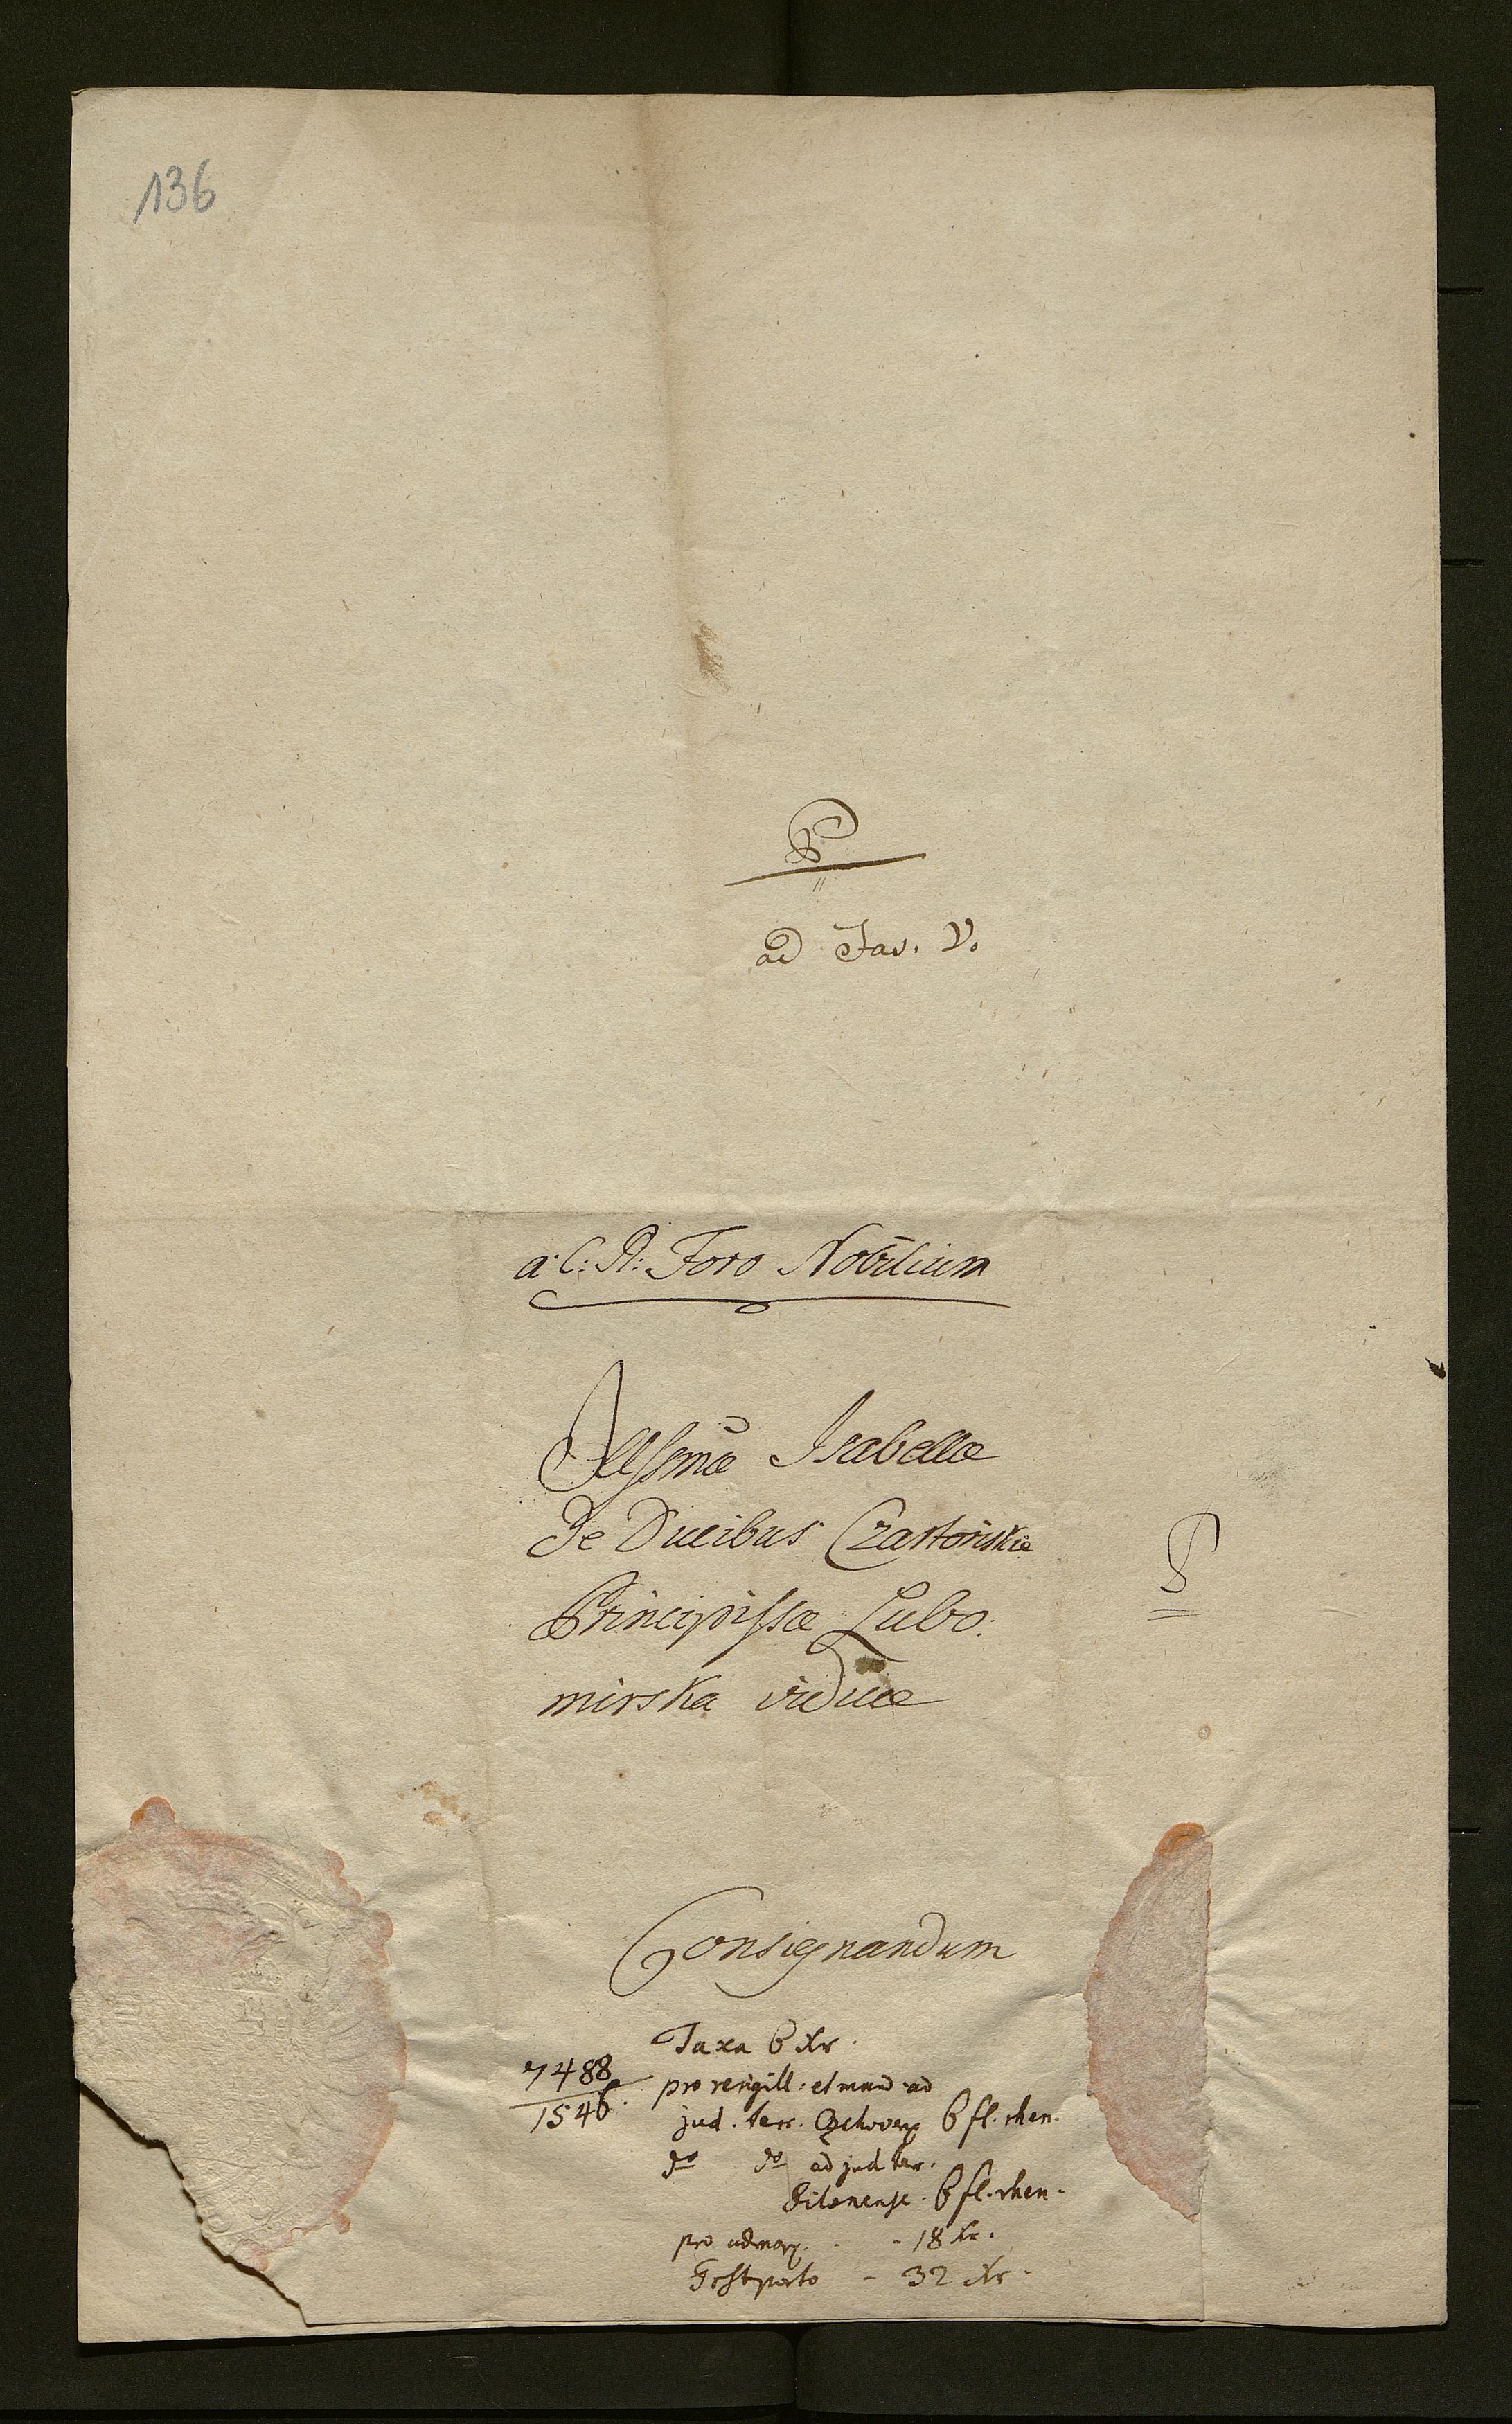 136
ad Fas. V.
a: C: R: Foro Nobilium
Illssmæ Isabellæ
De Ducibus Czartoriskie
Principissæ Lubo.
mirska viduæ
Consignandum
Taxa 6 xr.
7488
1546.
pro resigill: et mand. ad
jud. terr. 6 fl. rhen.
do do ad jud ter.
Pilsnense. 6 fl. rhen.
pro admany. - 18 xr.
Postporto - 32 xr.